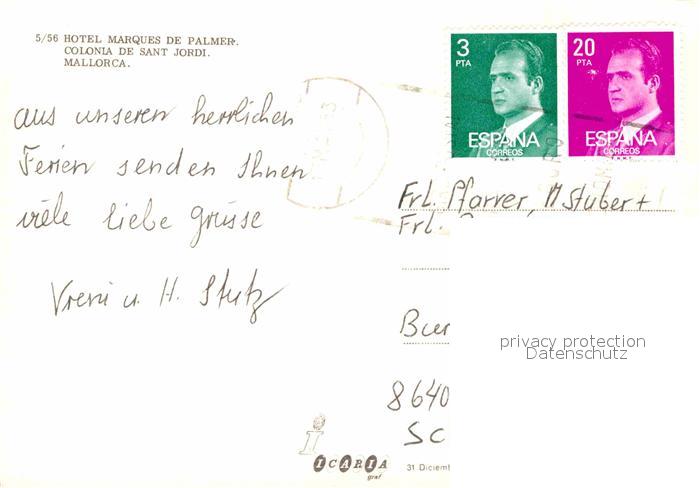 5/56 HOTEL MARQUES DE PALMER.
COLONIA DE SANT JORDI.
MALLORCA.
3 PTA
ESPAÑA
CORREOS
20 PTA
ESPAÑA
CORREOS
aus unseren herrlichen
Ferien senden Ihnen
viele liebe Grüsse
Vreni u. H. Stutz
Frl. Pfarrer, M Stuber +
Frl.
8640
SC
privacy protection
Datenschutz
ICARIA
graf
31 Diciem